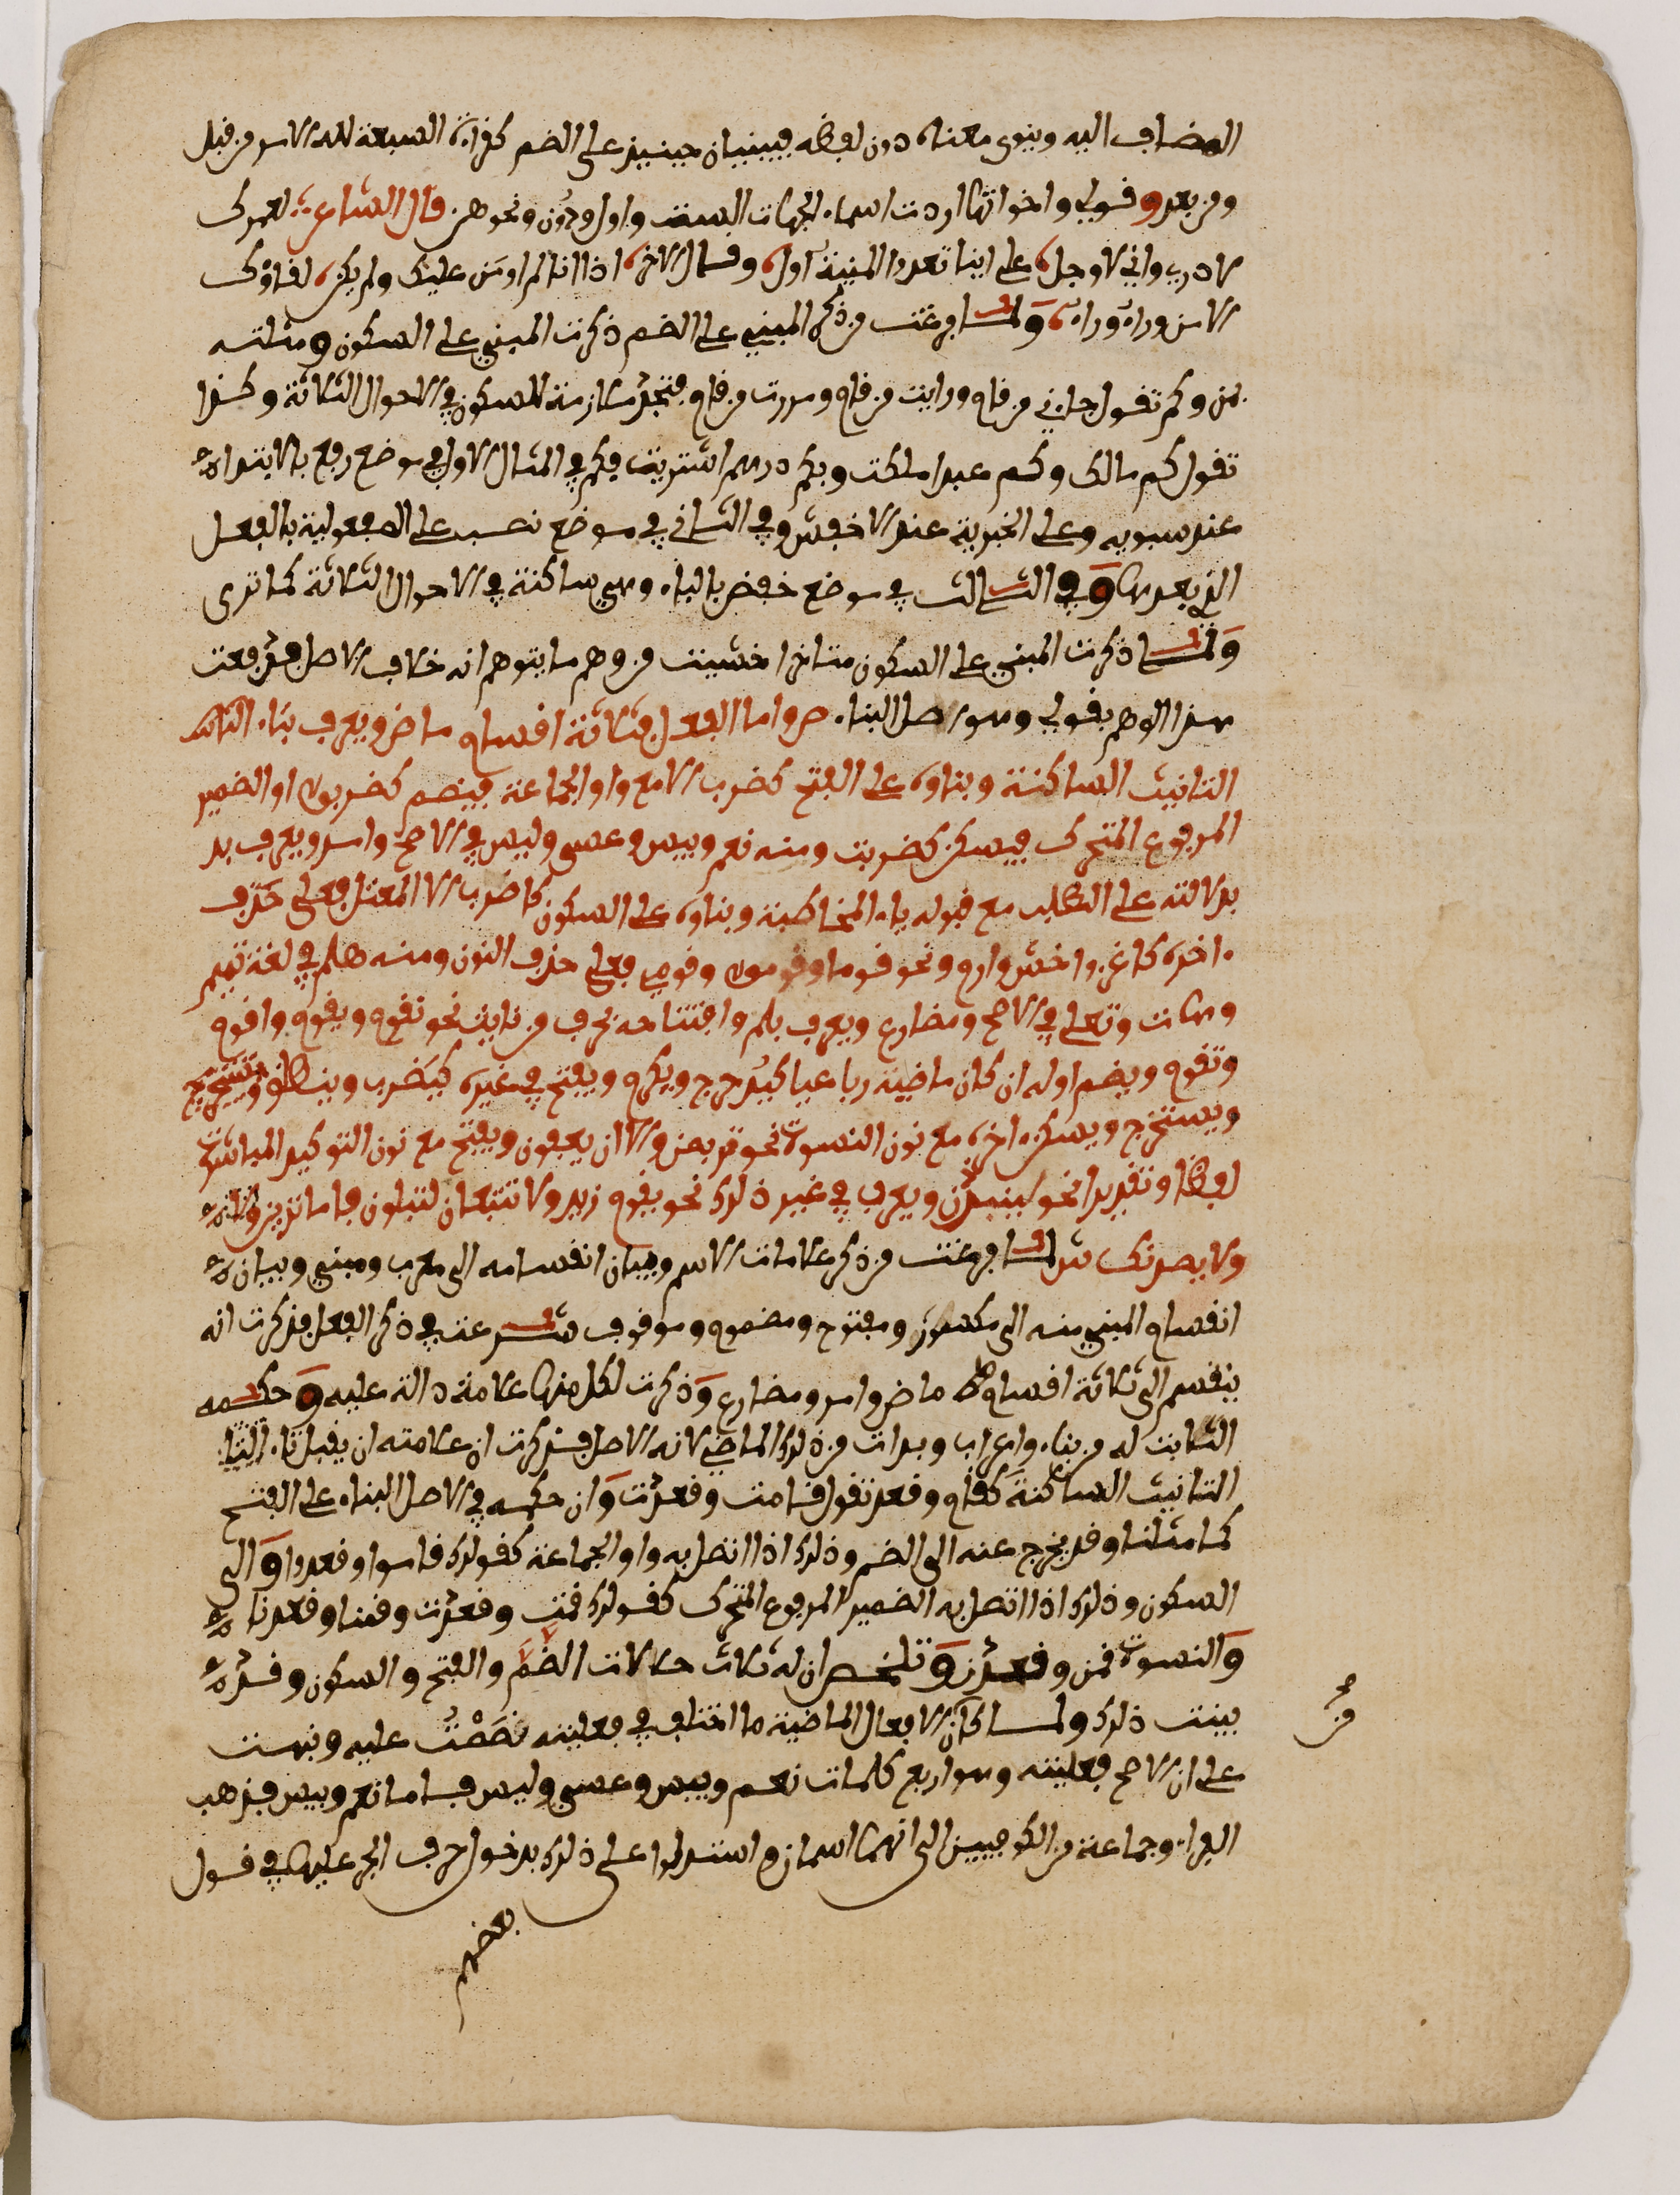 المضاف اليه وينوى معناه دون لفظه فيبنيان حينيذ على الضم كقراة السبعة لله الامر من قبل
ومن بعد وقولي واخواتها اردت اسماء الجهات الست واول ودون ونحوهن قال الشاعر لعمرك
ما ادري واني لاوجل على اينا تعدوا المنية اول وقال الاخر اذا انا لم اومن عليك ولم يكن لقاوك
الا من وراء وراء ولما فرغت من ذكر المبني على الضم ذكرت المبني على السكون ومثلته
بمن وكم تقول جاءني من قام ورايت من قام ومررت بمن قام فتجد من ملازمة للسكون في الاحوال الثلاثة وكذا
تقول كم مالك وكم عبدا ملكت وبكم درهم اشتريت فكم في المثال الاول في موضع رفع بالابتداء
عند سيبويه وعلى الخبرية عند الاخفش وفي الثاني في موضع نصب على المفعولية بالفعل
الذي بعدها وفي الثالث في موضع خفض بالباء وهي ساكنة في الاحوال الثلاثة كما ترى
ولما ذكرت المبني على السكون متاخرا خشيت من وهم ما يتوهم انه خلاف الاصل فدفعت
هذا الوهم بقولي وهو اصل البناء ص واما الفعل فثلاثة اقسام ماض ويعرف بتاء التا
التانيث الساكنة وبناوه على الفتح كضرب الا مع واو الجماعة فيضم كضربوا او الضمير
المرفوع المتحرك فيسكن كضربت ومنه نعم وبيس وعسى وليس في الاصح وامر ويعرف بد
بدلالته على الطلب مع قبوله ياء المخاطبة وبناوه على السكون كاضرب الا المعتل فعلى حذف
اخره كاغز واخش وارم ونحو قوما وقوموا وقومي فعلى حذف النون ومنه هلم في لغة تميم
وهات وتعال في الاصح ومضارع ويعرف بلم وافتتاحه بحرف من نايت نحو نقوم ويقوم واقوم
وتقوم ويضم اوله ان كان ماضيه رباعيا كيدحرج ويكرم ويفتح في غيره كيضرب وينطلق ويستخرج
ويستخرج ويسكن اخره مع نون النسوة نحو يتربصن والا ان يعفون ويفتح مع نون التوكيد المباشرة
لفظا وتقديرا نحو لينبذن ويعرب في غير ذلك نحو يقوم زيد ولا تتبعان لتبلون فاما ترين
ولا يصدنك ش لما فرغت من ذكر علامات الاسم وبيان انقسامه الى معرب ومبني وبيان
انقسام المبني منه الى مكسور ومفتوح ومضموم وموقوف شرعت في ذكر الفعل فذكرت انه
ينقسم الى ثلاثة اقسام ماض وامر ومضارع وذكرت لكل منها علامة دالة عليه وحكمه
الثابت له من بناء واعراب وبدات من ذلك بالماضي لانه الاصل فذكرت ان علامته ان يقبل تاء التا
التانيث الساكنة كقام وقعد تقول قامت وقعدت وان حكمه في الاصل البناء على الفتح
كما مثلنا وقد يخرج عنه الى الضم وذلك اذا اتصل به واو الجماعة كقولك قاموا وقعدوا والى
السكون وذلك اذا اتصل به الضمير المرفوع المتحرك كقولك قمت وقعدت وقمنا وقعدنا
والنسوة قمن وقعدن وتلخص ان له ثلاث حالات الضم والفتح والسكون وقد
بينت ذلك ولما كان من الافعال الماضية ما اختلف في فعليته نصصت عليه ونبهت
على ان الاصح فعليته وهو اربع كلمات نعم وبيس وعسى وليس فاما نعم وبيس فذهب
الفراء وجماعة من الكوفيين الى انهما اسمان واستدلوا على ذلك بدخول حرف الجر عليها في قول
بعضهم